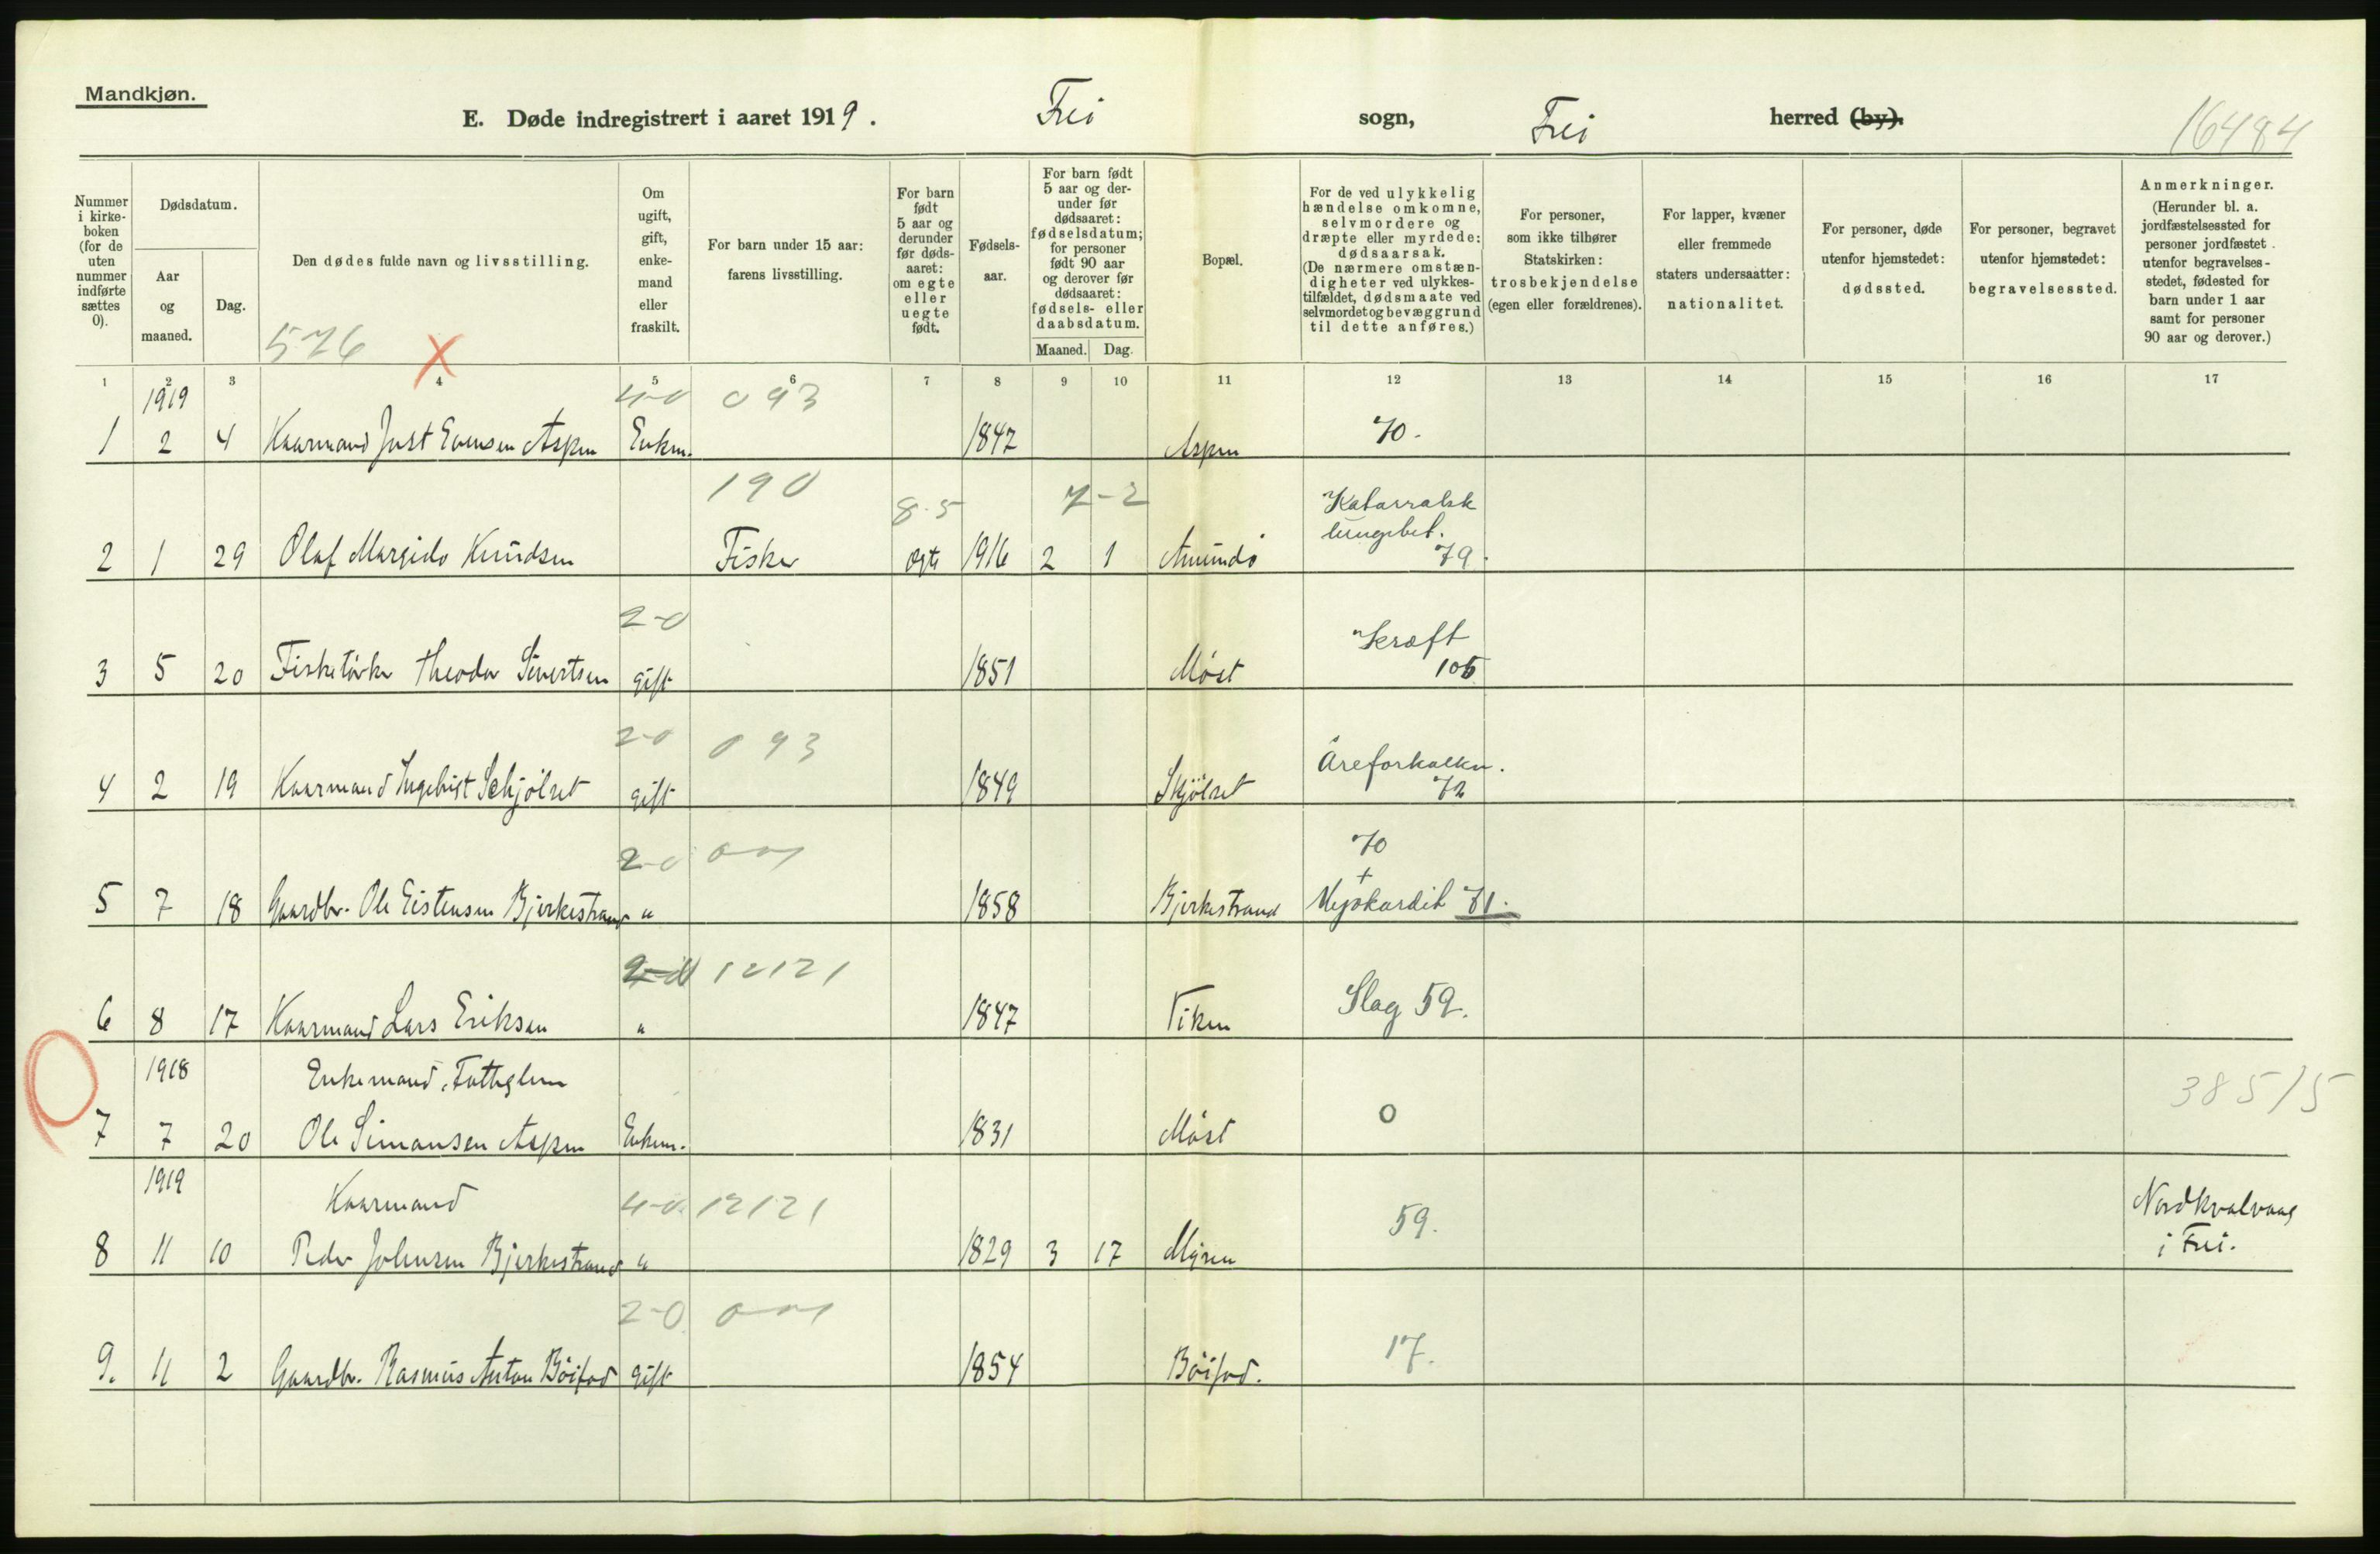 Mandkjøn.
E. Døde indregistrert i aaret 1919. Frei sogn, Frei herred (by).
16484
Nummer i kirkeboken (for de uten nummer indførte sættes 0).
Dødsdatum.
Aar og maaned.
Dag.
Den dødes fulde navn og livsstilling.
576 X
Om ugift, gift, enkemand eller fraskilt.
For barn under 15 aar: farens livsstilling.
For barn født 5 aar og derunder før dødsaaret: om egte eller uegte født.
Fødselsaar.
For barn født 5 aar og derunder før dødsaaret: fødselsdatum; for personer født 90 aar og derover før dødsaaret: fødsels- eller daabsdatum.
Maaned. Dag.
Bopæl.
For de ved ulykkelig hændelse omkomne, selvmordere og dræpte eller myrdede: dødsaarsak. (De nærmere omstændigheter ved ulykkestilfældet, dødsmaate ved selvmordet og bevæggrund til dette anføres.)
For personer, som ikke tilhører Statskirken: trosbekjendelse (egen eller forældrenes).
For lapper, kvæner eller fremmede staters undersaatter: nationalitet.
For personer, døde utenfor hjemstedet: dødssted.
For personer, begravet utenfor hjemstedet: begravelsessted.
Anmerkninger. (Herunder bl. a. jordfæstelsessted for personer jordfæstet utenfor begravelsesstedet, fødested for barn under 1 aar samt for personer 90 aar og derover.)
1 2 3 4 5 6 7 8 9 10 11 12 13 14 15 16 17
1919 4-0 093
1 2 4 Kaarmand Just Evensen Aspen Enkem. 1847 Aspen 70.
190 8-5 7-2 Katarralsk
lungebet.
2 1 29 Olaf Margido Knudsen Fisker egte 1916 2 1 Amundö 79.
2-0 Kræft
3 5 20 Fisketörker Theodor Sivertsen gift 1851 Möst 105
2-0 093 Åreforkalkn.
4 2 19 Kaarmand Ingebrigt Schjölset gift 1849 Skjölset 72
2-0 001 70
+
5 7 18 Gaardbr. Ole Eistensen Bjerkestrand " 1858 Bjerkestrand Myokardit 71.
12121
6 8 17 Kaarmand Lars Eriksen " 1847 Viken Slag 59.
1918 Enkemand, Fattiglem 385/5
7 7 20 Ole Simonsen Aspen Enkem. 1831 Möst 0
1919 Kaarmand 4-0 12121 Nordkvalvaag
8 11 10 Peder Johnsen Bjerkestrand " 1829 3 17 Myren 59. i Frei.
2-0 001
9. 11 2 Gaardbr. Rasmus Anton Böifod gift 1854 Böifod. 17.